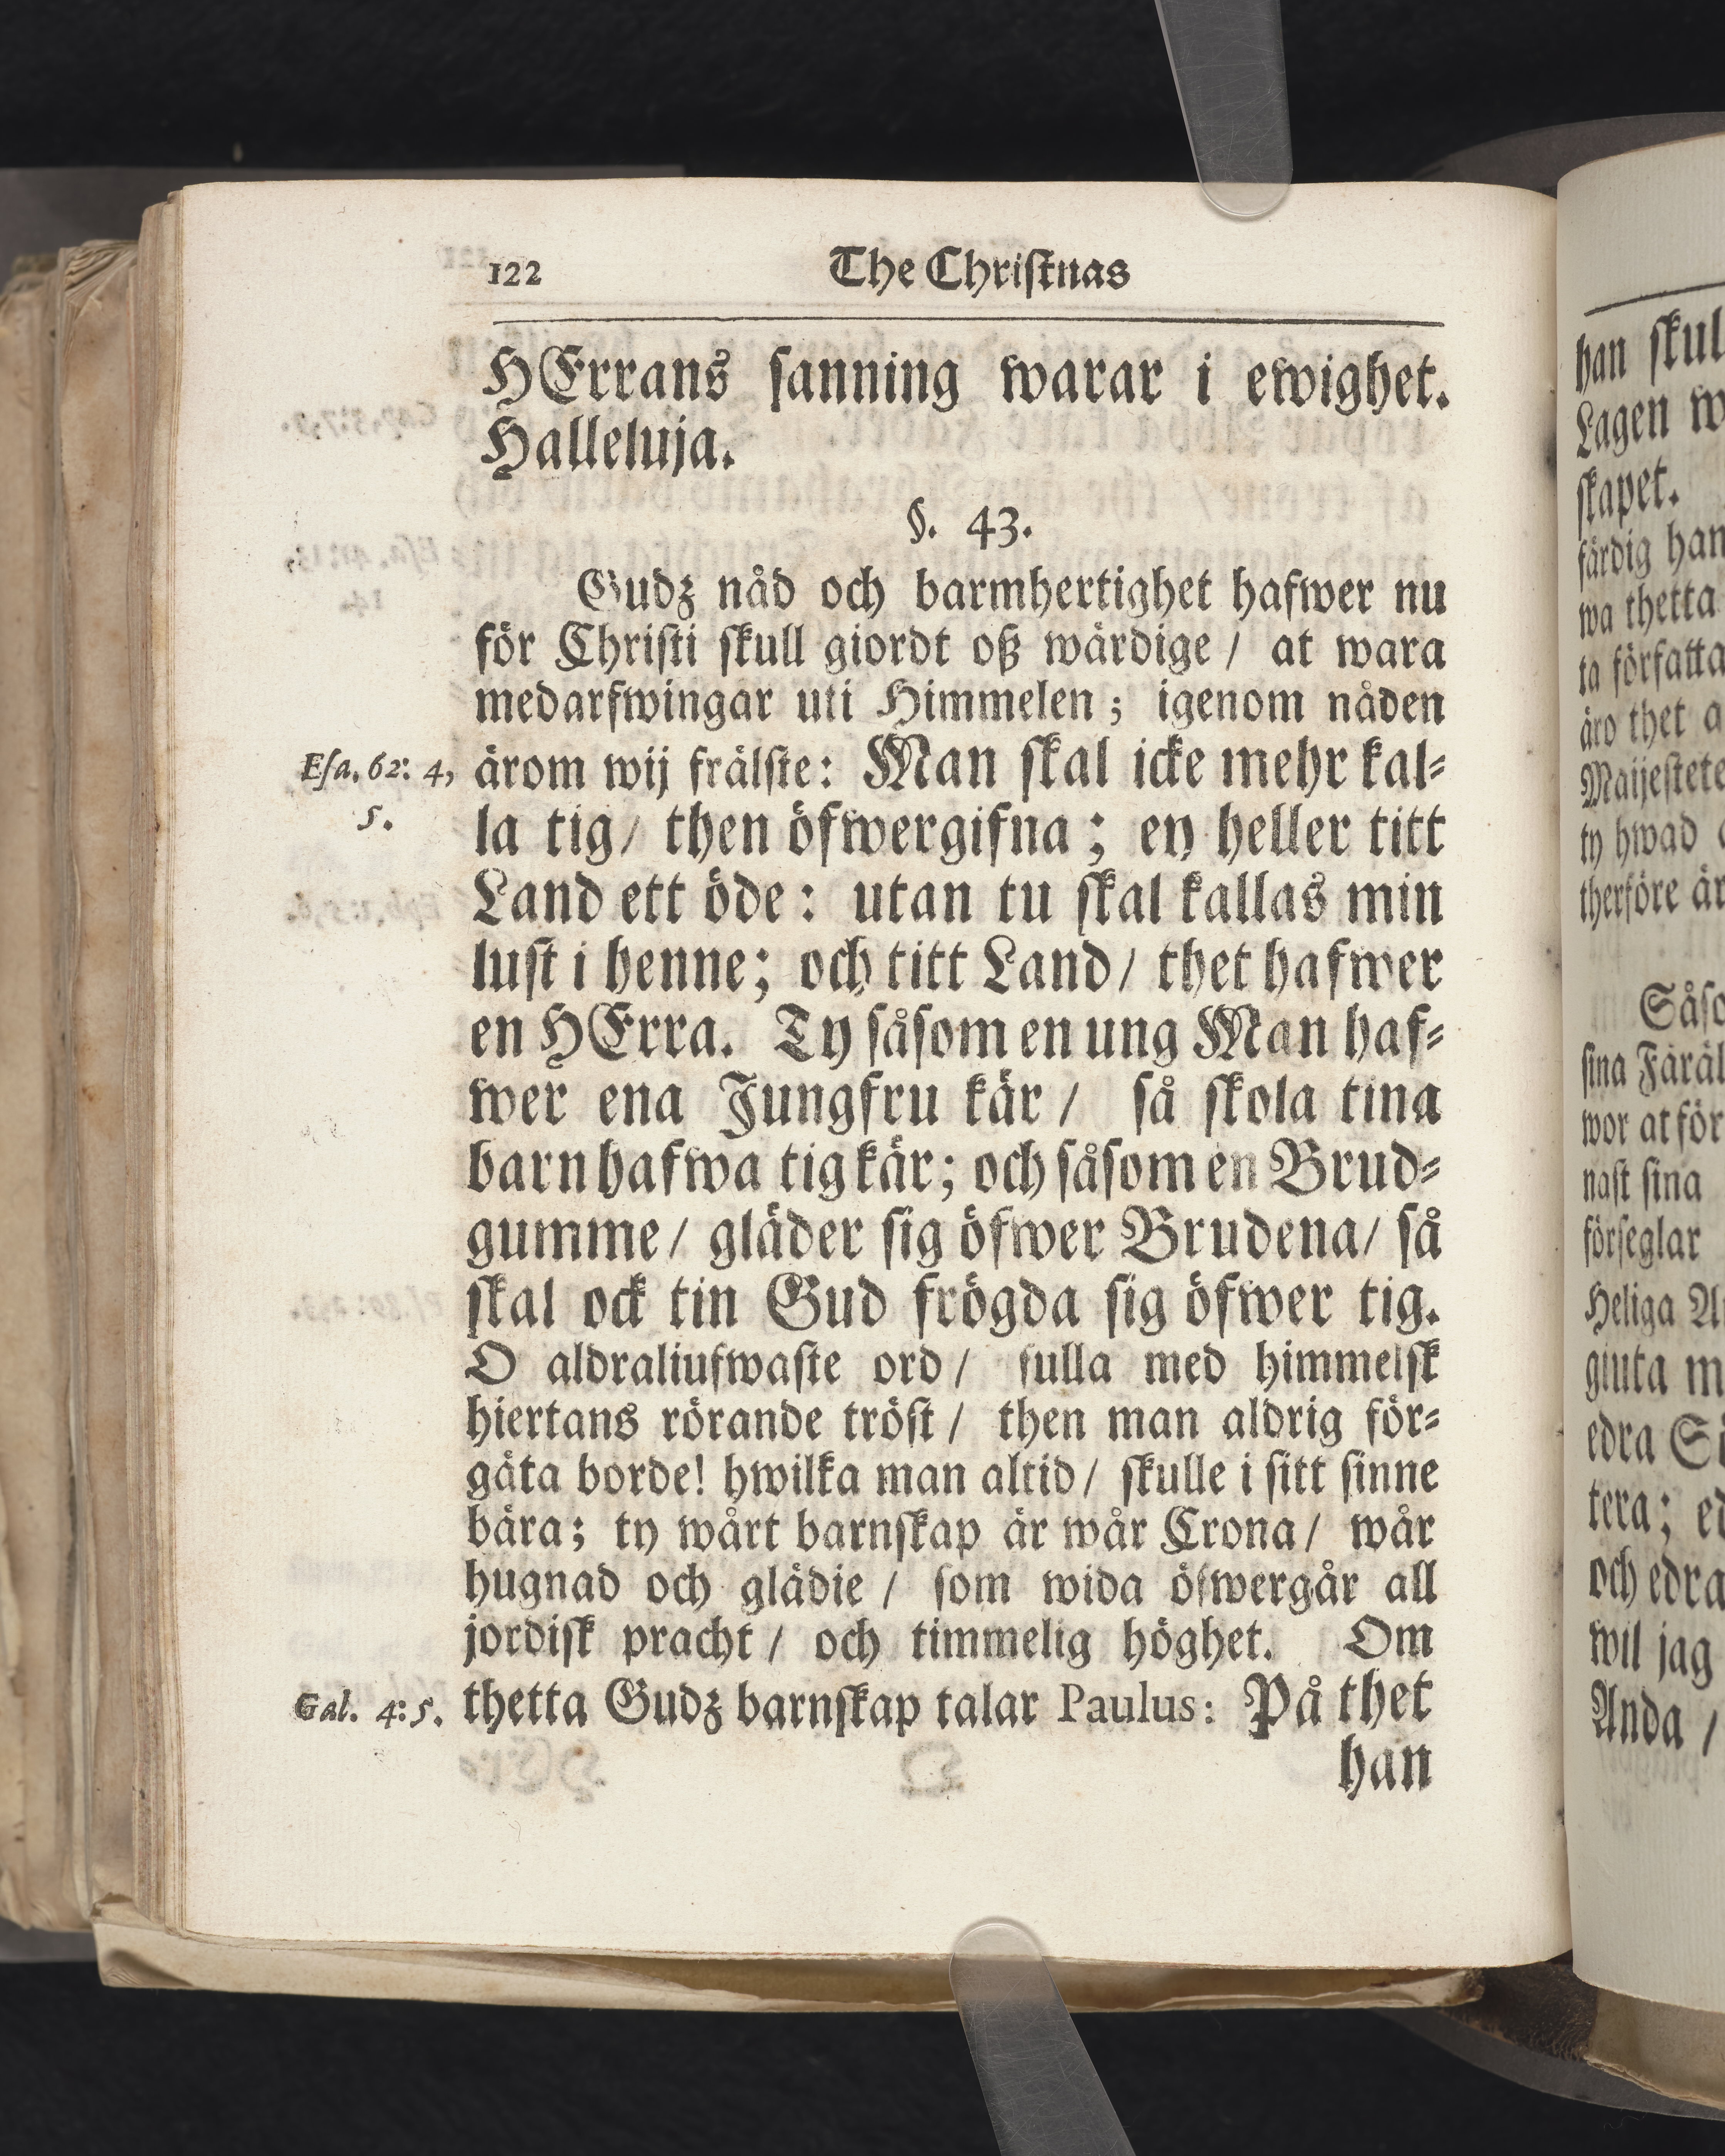 122 The Christnas
HErrans sanning warar i ewighet.
Halleluja.
§. 43.
Gudz nåd och barmhertighet hafwer nu
för Christi skull giordt oß wärdige / at wara
medarfwingar uti Himmelen; igenom nåden
Esa. 62: 4, ärom wij frälste: Man skal icke mehr kal-
5. la tig / then öfwergifna; ey heller titt
Land ett öde: utan tu skal kallas min
lust i henne; och titt Land / thet hafwer
en HErra. Ty såsom en ung Man haf-
wer ena Jungfru kär / så skola tina
barn hafwa tig kär; och såsom en Brud-
gumme / gläder sig öfwer Brudena / så
skal ock tin Gud frögda sig öfwer tig.
O aldraliufwaste ord / fulla med himmelsk
hiertans rörande tröst / then man aldrig för-
gäta borde! hwilka man altid / skulle i sitt sinne
bära; ty wårt barnskap är wår Crona / wår
hugnad och glädie / som wida öfwergår all
jordisk pracht / och timmelig höghet. Om
Gal. 4: 5. thetta Gudz barnskap talar Paulus: På thet
han
han skul
Lagen w
skapet.
färdig han
wa thetta
ta författa
äro thet a
Maijestete
ty hwad
therföre är
Såso
sina Föräl
wor at för
nast sina
förseglar
Heliga An
giuta m
edra Sö
tera; ed
och edra
wil jag
Anda /